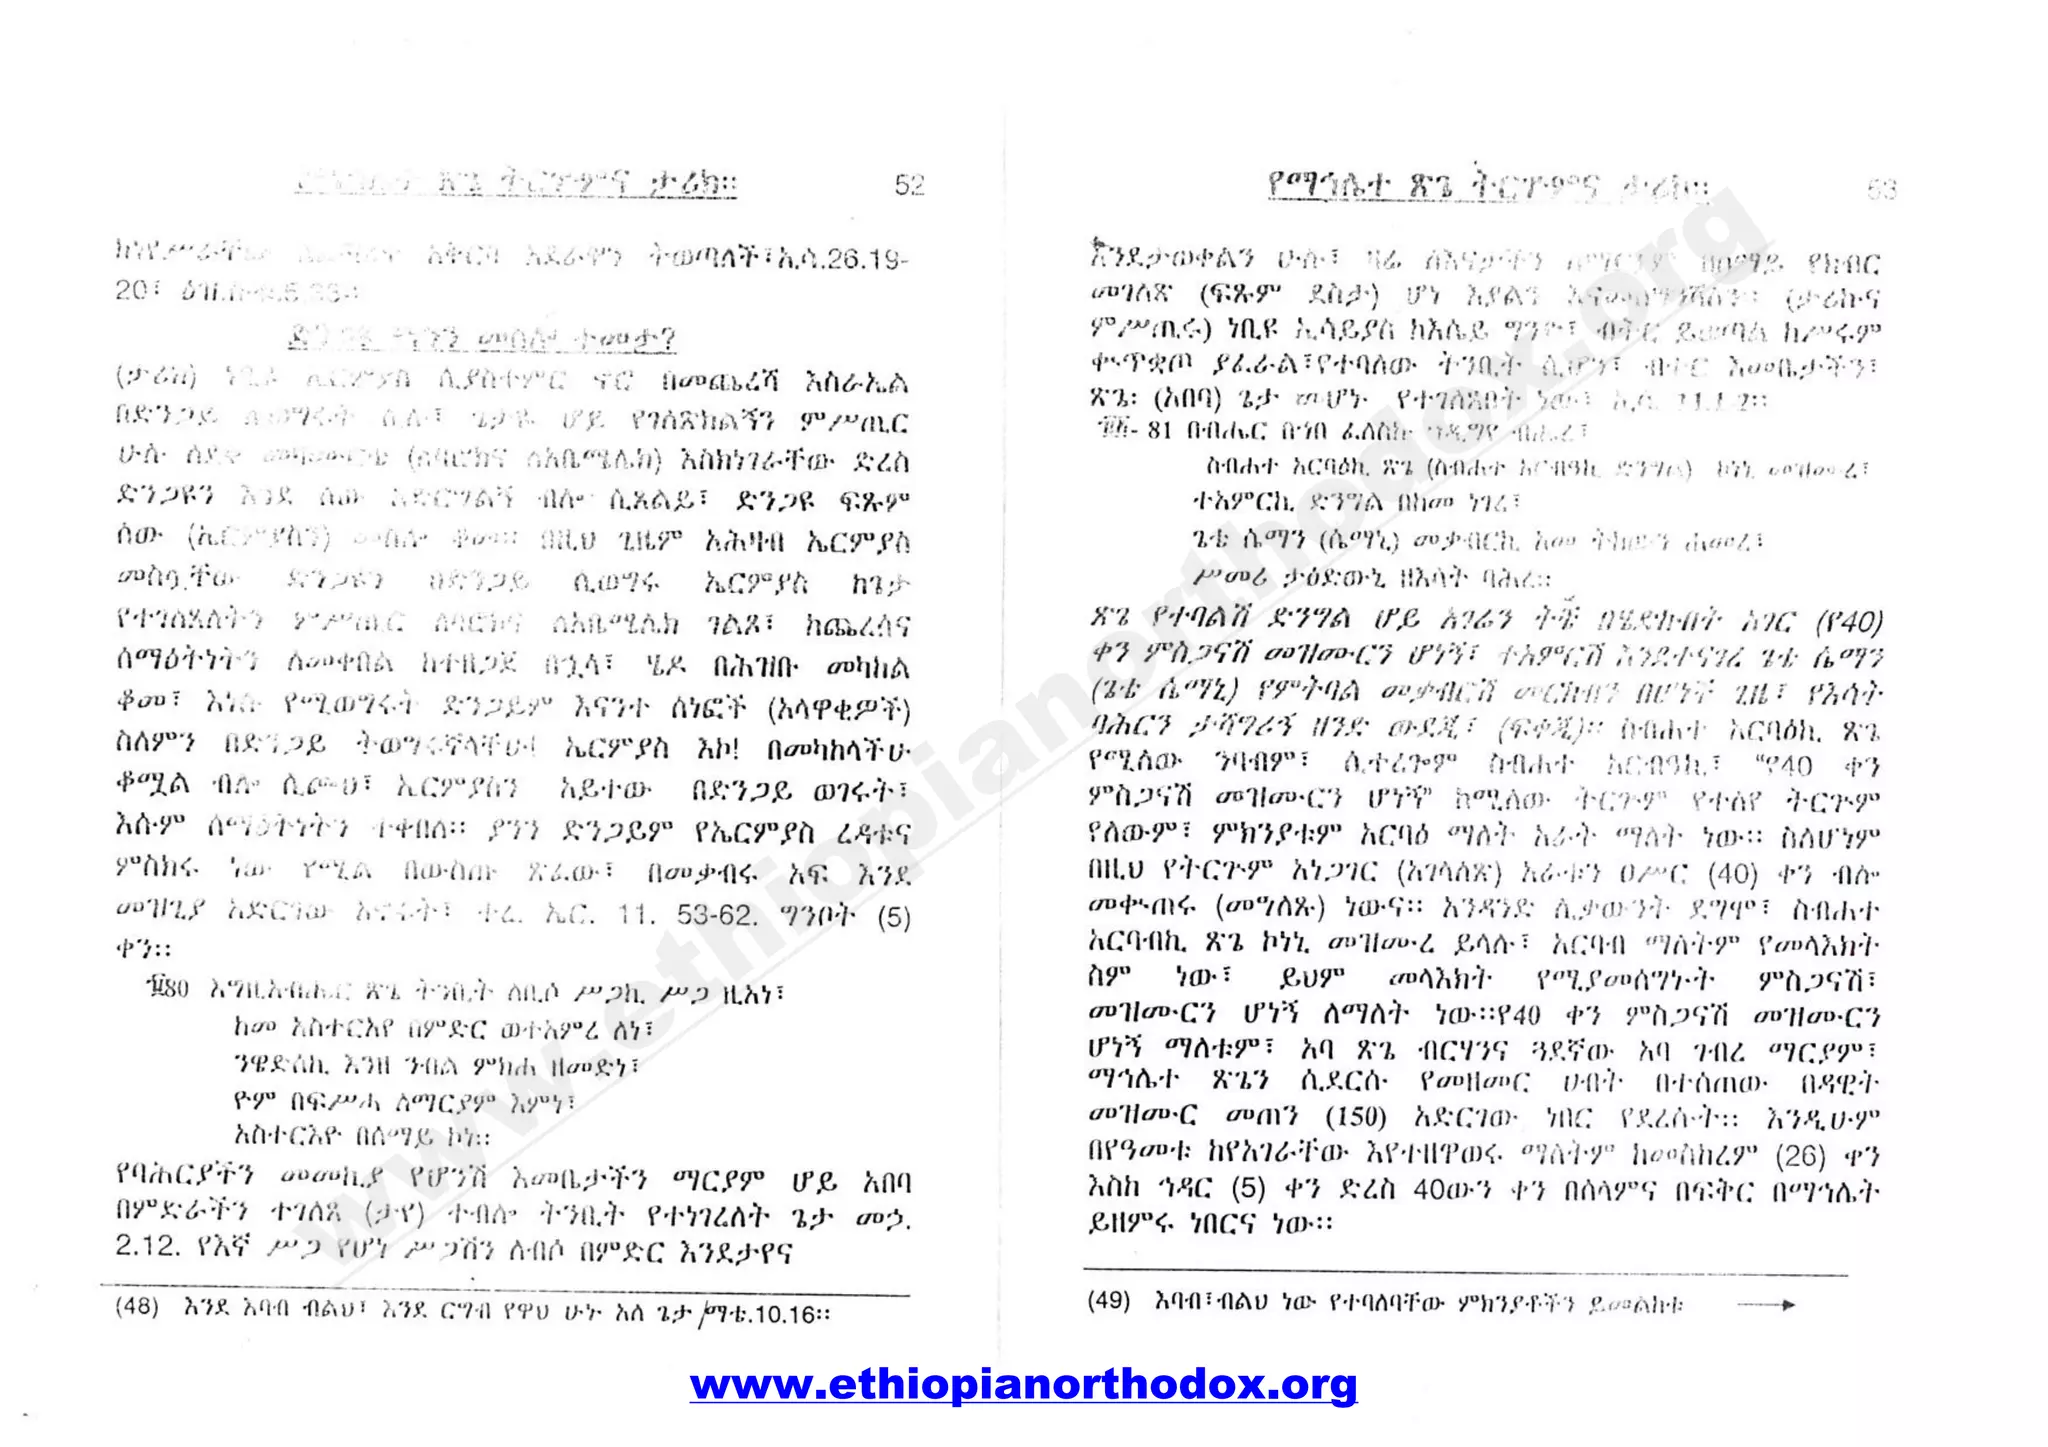 ጽጌ ትርጉምና ታሪክ። 52
ትወጣለች፣ኢሳ.26.19-
20፣
መስሎ ተመታ?
(ታሪክ) ነቢዩ ኤርምያስ ሲያስተምር ኖሮ በመጨረሻ እስራኤል
በድንጋይ ሆይ የገለጽክልኝን ምሥጢር
ሁሉ ለደቀ እስክነገራቸው ድረስ
ድንጋዩን እንደ ሰው አድርግልኝ ብሎ ሲጸልይ፣ ድንጋዩ ፍጹም
ሰው (ኤርምያስን) መስሎ ቆመ። በዚህ ጊዜም አሕዛብ ኤርምያስ
መስሏቸው ድንጋዩን በድንጋይ ሲወግሩ ኤርምያስ ከጌታ
የተገለጸለትን ምሥጢር ለባሮክና ለአቤሜሌክ ገልጾ፣ ከጨረሰና
ሰማዕትነትን ለመቀበል ከተዘጋጀ በኋላ፣ ሄዶ በሕዝቡ መካከል
ቆመ፣ እነሱ የሚወግሩት ድንጋይም እናንተ ሰነፎች (አላዋቂዎች)
ስለምን በድንጋይ ትወግሩኛላችሁ! ኤርምያስ እኮ! በመካከላችሁ
ቆሟል ብሎ ሲጮህ፣ ኤርምያስን አይተው በድንጋይ ወገሩት፣
እሱም ሰማዕትነትን ተቀበለ። ያንን ድንጋይም የኤርምያስ ረዳቱና
ምስክሩ ነው የሚል በውስጡ ጽፈው፣ በመቃብሩ አፍ እንደ
መዝጊያ አድርገው አኖሩት፣ ተረ. ኤር. 11. 53-62. ግንቦት (5)
ቀን።
80 እግዚአብሔር ጽጌ ትንቢት ለቢሶ ሥጋኪ ሥጋ ዚአነ፣
ከመ አስተርአየ በምድር ወተአምረ ለነ፣
ንዌድሰኪ እንዘ ንብል ምክሐ ዘመድነ፣
ዮም በፍሥሓ ለማርያም እምነ፣
አስተርእዮ በሰማይ ኮነ።
የባሕርያችን መመኪያ የሆንሽ እመቤታችን ማርያም ሆይ አበባ
በምድራችን ተገለጸ (ታየ) ተብሎ ትንቢት የተነገረለት ጌታ መኃ.
2.12. የእኛ ሥጋ የሆነ ሥጋሽን ለብሶ በምድር እንደታየና
(48) እንደ እባብ ብልህ፣ እንደ ርግብ የዋህ ሁኑ አለ ጌታ ማቴ.10.16።
የማኅሌተ ጽጌ ትርጉምና ታሪክ። 53
እንደታወቀልን ሁሉ፣ ዛሬ ለእናታችን ለማርያም በሰማይ የክብር
መገለጽ (ፍጹም ደስታ) ሆነ እያልን እናመሰግንሻለን። (ታሪኩና
ምሥጢሩ) ነቢዩ ኢሳይያስ ከእሴይ ግንዶ፣ ብትር ይመጣል ከሥሩም
ቍጥቋጦ ያፈራል፣የተባለው ትንቢት ሲሆን፣ ብትር እመቤታችን፣
ጽጌ፡ (አበባ) ጌታ መሆኑ የተገለጸበት ነው፣ ኢሳ. 11.1.2።
81 በብሔር
ስብሐተ አርባዕኪ ጽጌ
ተአምርኪ ድንግል በከመ ነገረ፣
ጌቴ ሴማን (ሴማኒ) መቃብርኪ
ሥመሪ ታዕድውኒ ዘእሳት ባሕረ።
ጽጌ የተባልሽ ድንግል ሆይ አገሬን ትቼ በሄድኩበት አገር (የ40)
ቀን ምስጋናሽ መዝሙርን ሆነኝ፣ ተአምርሽ እንደተናገረ ጌቴ ሴማን
(ጌቴ ሴማኒ) የምትባል መቃብርሽ መርከብን በሆነች ጊዜ፣ የእሳት
ባሕርን ታሻግሪኝ ዘንድ ውደጂ፣ (ፍቀጂ)። ስብሐተ አርባዕኪ ጽጌ
የሚለው ንባብም፣ ሲተረጐም ስብሐተ አርብዓኪ፣ "የ40 ቀን
ምስጋናሽ መዝሙርን ሆነኝ" ከሚለው ትርጉም የተለየ ትርጉም
የለውም፣ ምክንያቱም አርባዕ ማለት አራት ማለት ነው። ስለሆነም
በዚህ የትርጉም አነጋገር (አገላለጽ) አራቱን ዐሥር (40) ቀን ብሎ
መቍጠሩ (መግለጹ) ነውና። አንዳንድ ሊቃውንት ደግሞ፣ ስብሐተ
አርባብኪ ጽጌ ኮነኒ መዝሙረ ይላሉ፣ አርባብ ማለትም የመላእክት
ስም ነው፣ ይህም መላእክት የሚያመሰግኑት ምስጋናሽ፣
መዝሙርን ሆነኝ ለማለት ነው።የ40 ቀን ምስጋናሽ መዝሙርን
ሆነኝ ማለቱም፣ አባ ጽጌ ብርሃንና ጓደኛው አባ ገብረ ማርያም፣
ማኅሌተ ጽጌን ሲደርሱ የመዘመር ሀብት በተሰጠው በዳዊት
መዝሙር መጠን (150) አድርገው ነበር የደረሱት። እንዲሁም
በየዓመቱ ከየአገራቸው እየተዘዋወሩ ማለትም ከመስከረም (26) ቀን
እስከ ኅዳር (5) ቀን ድረስ 40ውን ቀን በሰላምና በፍቅር በማኅሌት
ይዘምሩ ነበርና ነው።
(49) እባብ፣ብልህ ነው የተባለባቸው ምክንያቶችን ይመልከቱ →
www.ethiopianorthodox.org
www.ethiopianorthodox.org